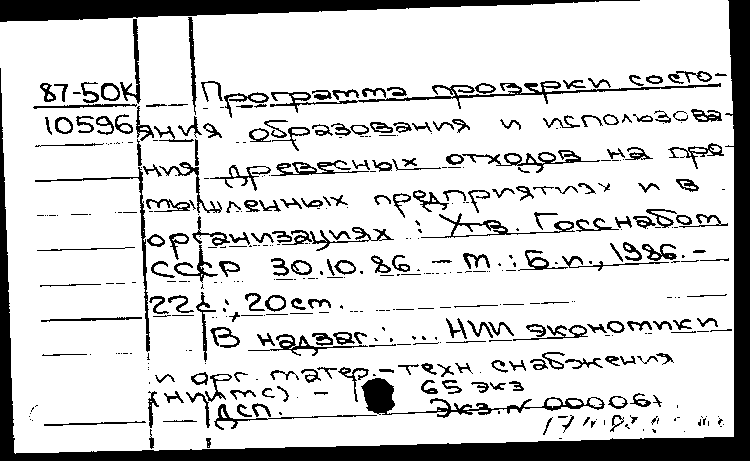 87-50К Программа проверки состо-
10596 яния образования и использова-
ния древесных отходов на про-
мышленных предприятиях и в
организациях : Утв. Госснабом
СССР 30.10.86. - М.: Б.и., 1986.-
22с.; 20см.
В надзаг.: ... НИИ экономики
и орг. матер.-техн. снабжения
(НИИМС) - 65 экз
ДСП. Экз.№ 000061